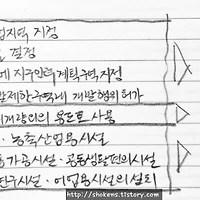 지역 지정
결정
에 지구단위계획구역 지정
제한구역내 개발행위허가
외의 용도로 사용
· 농축산업용시설
가공시설 · 공동생활편의시설
연구시설 · 어업용시설의 설치
https://shokens.tistory.com